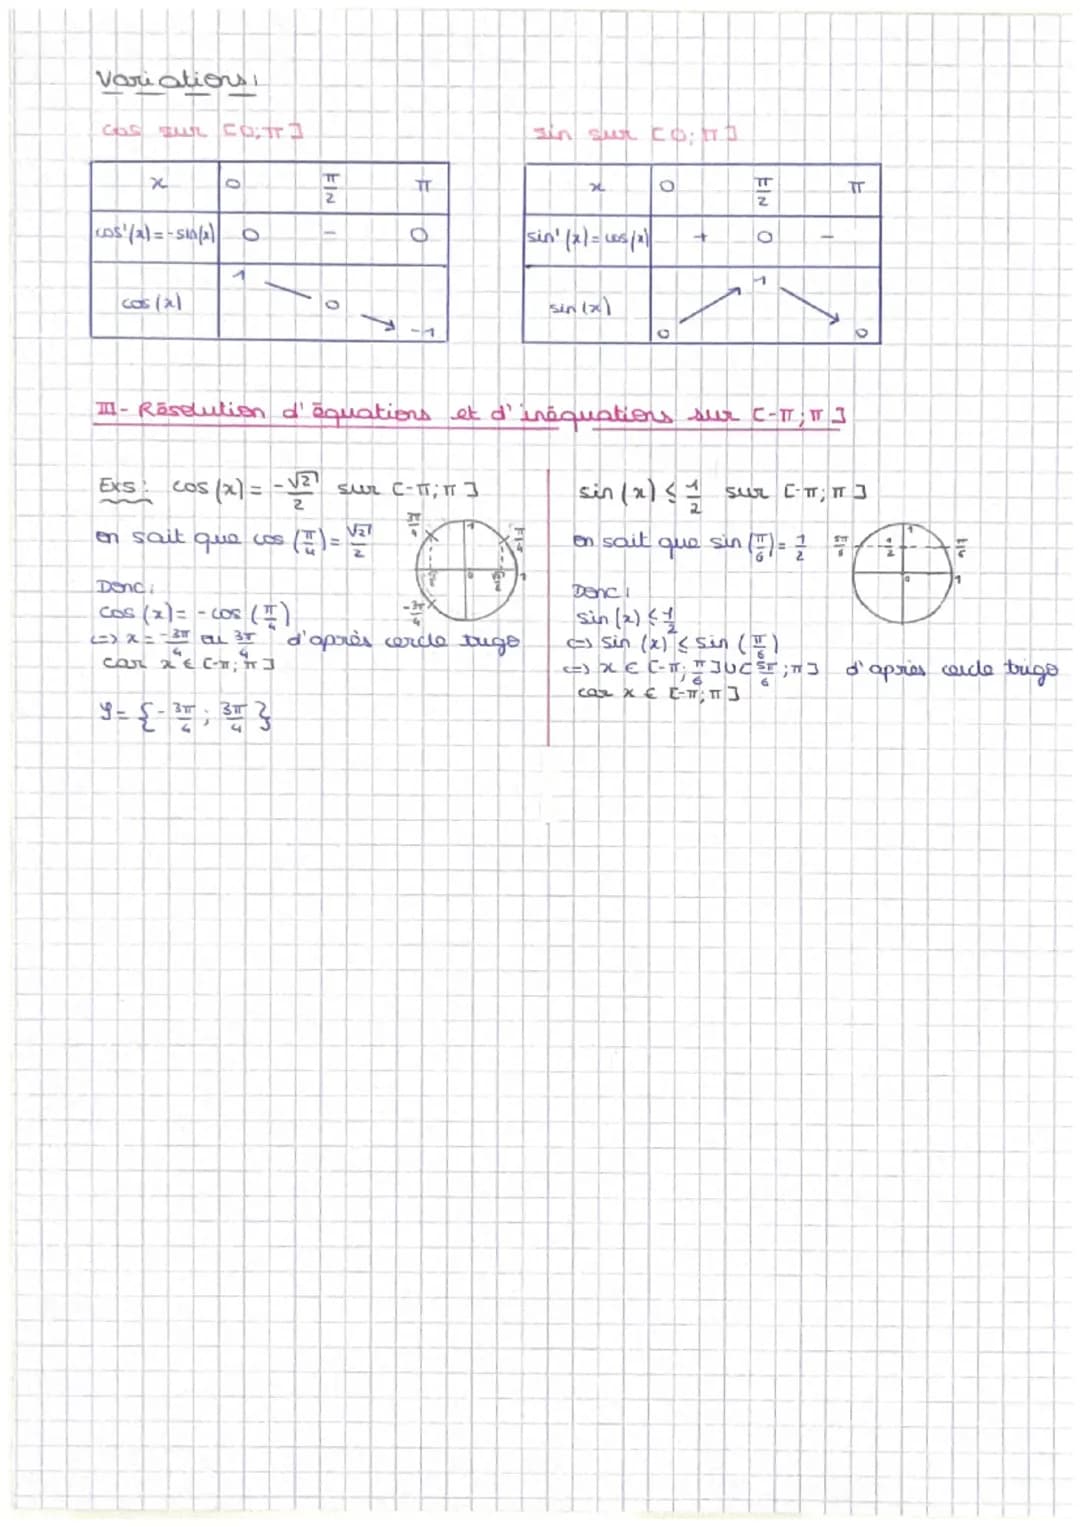 Variations:
cos sur [0;π]
x 0 π/2 π
cos'(x)=-sin(x) 0 - 0
cos(x) 1 0 -1
sin sur [0;π]
x 0 π/2 π
sin'(x)=cos(x) + 0 -
sin(x) 0 1 0
III- Résolution d'équations et d'inéquations sur [-π;π]
Exs: cos(x)= -√2/2 sur [-π;π]
on sait que cos(π/4)= √2/2
3π/4 1 π/4
-√2/2 0 √2/2 1
-3π/4
Donc:
cos(x)= -cos(π/4)
<=> x= -3π/4 ou 3π/4 d'après cercle trigo
car x ∈ [-π;π]
S= {-3π/4; 3π/4}
sin(x) ≤ 1/2 sur [-π;π]
on sait que sin(π/6)= 1/2
5π/6 1/2 1 π/6
0 1
Donc:
sin(x) ≤ 1/2
<=> sin(x) ≤ sin(π/6)
<=> x ∈ [-π; π/6]∪[5π/6;π] d'après cercle trigo
car x ∈ [-π;π]